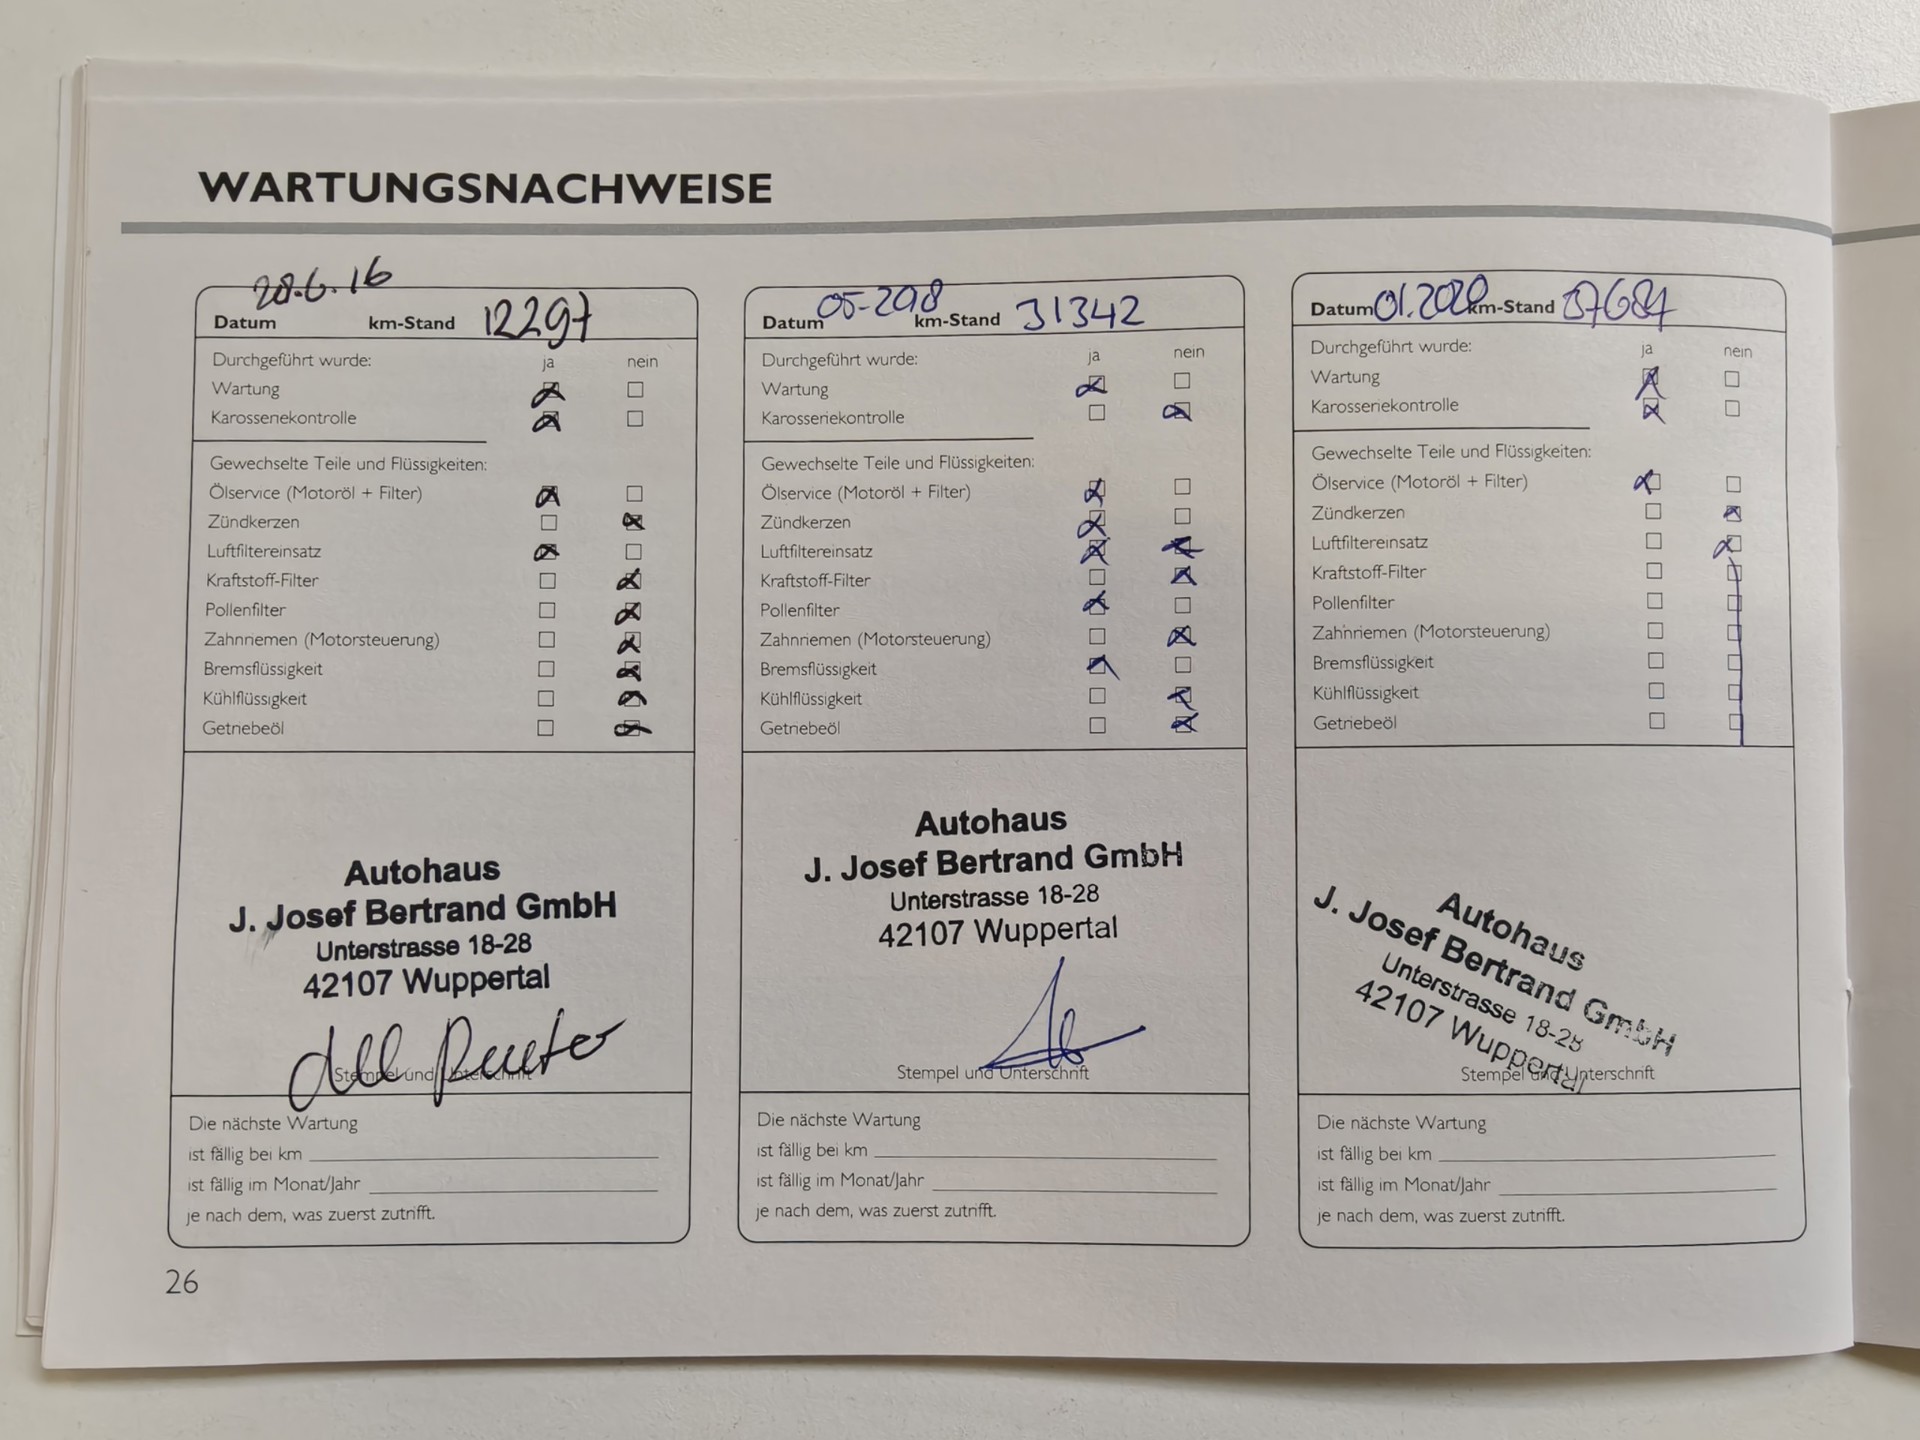 WARTUNGSNACHWEISE
28.6.16
Datum km-Stand 12297
Durchgeführt wurde: ja nein
Wartung
Karosseriekontrolle
Gewechselte Teile und Flüssigkeiten:
Ölservice (Motoröl + Filter)
Zündkerzen
Luftfiltereinsatz
Kraftstoff-Filter
Pollenfilter
Zahnriemen (Motorsteuerung)
Bremsflüssigkeit
Kühlflüssigkeit
Getriebeöl
Autohaus
J. Josef Bertrand GmbH
Unterstrasse 18-28
42107 Wuppertal
Stempel und Unterschrift
Die nächste Wartung
ist fällig bei km
ist fällig im Monat/Jahr
je nach dem, was zuerst zutrifft.
Datum km-Stand 31342
Durchgeführt wurde: ja nein
Wartung
Karosseriekontrolle
Gewechselte Teile und Flüssigkeiten:
Ölservice (Motoröl + Filter)
Zündkerzen
Luftfiltereinsatz
Kraftstoff-Filter
Pollenfilter
Zahnriemen (Motorsteuerung)
Bremsflüssigkeit
Kühlflüssigkeit
Getriebeöl
Autohaus
J. Josef Bertrand GmbH
Unterstrasse 18-28
42107 Wuppertal
Stempel und Unterschrift
Die nächste Wartung
ist fällig bei km
ist fällig im Monat/Jahr
je nach dem, was zuerst zutrifft.
Datum 01.2020 km-Stand
Durchgeführt wurde: ja nein
Wartung
Karosseriekontrolle
Gewechselte Teile und Flüssigkeiten:
Ölservice (Motoröl + Filter)
Zündkerzen
Luftfiltereinsatz
Kraftstoff-Filter
Pollenfilter
Zahnriemen (Motorsteuerung)
Bremsflüssigkeit
Kühlflüssigkeit
Getriebeöl
Autohaus
J. Josef Bertrand GmbH
Unterstrasse 18-28
42107 Wuppertal
Stempel und Unterschrift
Die nächste Wartung
ist fällig bei km
ist fällig im Monat/Jahr
je nach dem, was zuerst zutrifft.
26